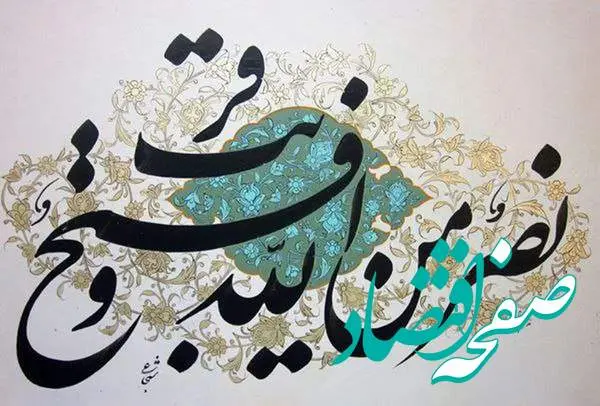 نصر من الله و فتح قریب
شجاعی
صفحه اقتصاد